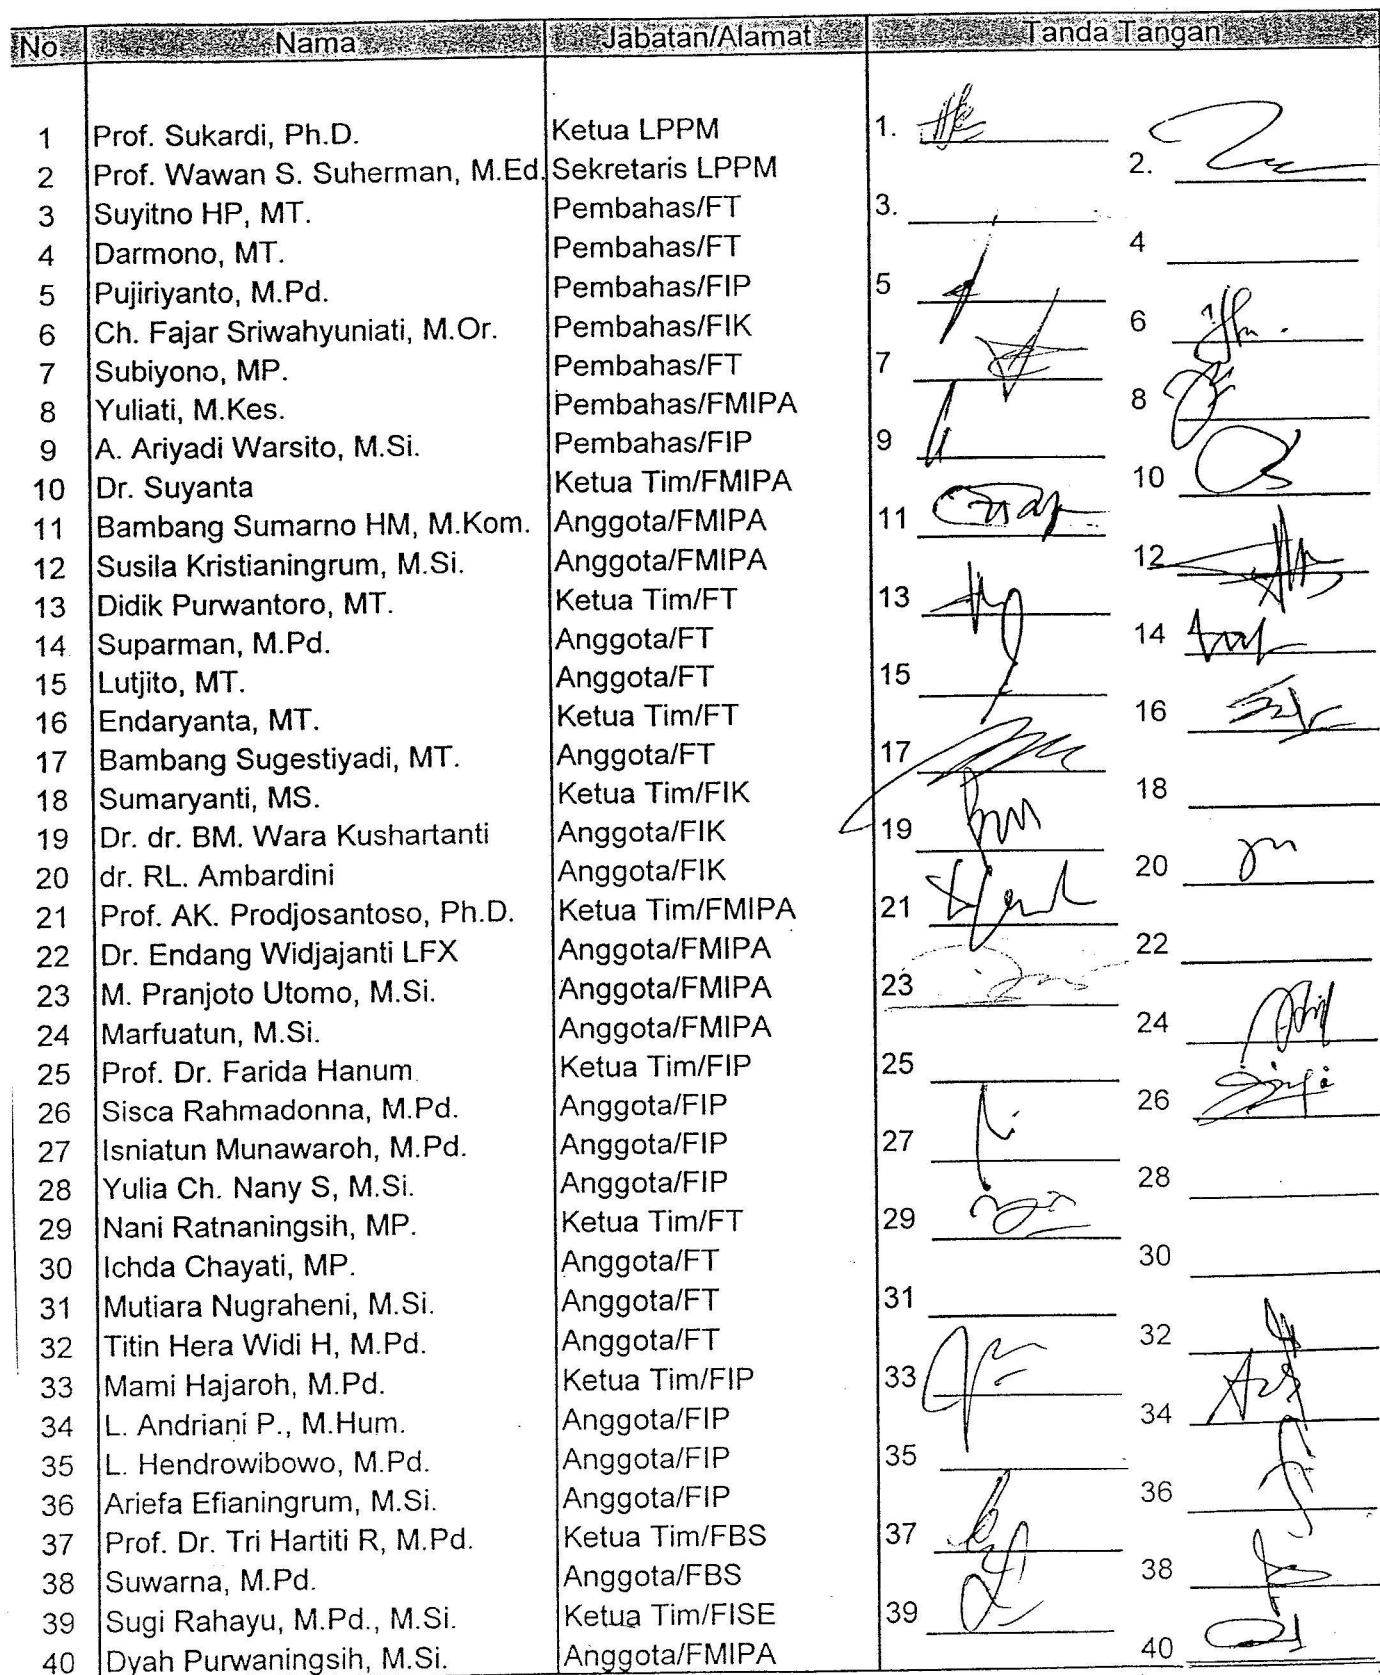 No Nama Jabatan/Alamat Tanda Tangan
1 Prof. Sukardi, Ph.D. Ketua LPPM 1.
2 Prof. Wawan S. Suherman, M.Ed. Sekretaris LPPM 2.
3 Suyitno HP, MT. Pembahas/FT 3.
4 Darmono, MT. Pembahas/FT 4
5 Pujiriyanto, M.Pd. Pembahas/FIP 5
6 Ch. Fajar Sriwahyuniati, M.Or. Pembahas/FIK 6
7 Subiyono, MP. Pembahas/FT 7
8 Yuliati, M.Kes. Pembahas/FMIPA 8
9 A. Ariyadi Warsito, M.Si. Pembahas/FIP 9
10 Dr. Suyanta Ketua Tim/FMIPA 10
11 Bambang Sumarno HM, M.Kom. Anggota/FMIPA 11
12 Susila Kristianingrum, M.Si. Anggota/FMIPA 12
13 Didik Purwantoro, MT. Ketua Tim/FT 13
14 Suparman, M.Pd. Anggota/FT 14
15 Lutjito, MT. Anggota/FT 15
16 Endaryanta, MT. Ketua Tim/FT 16
17 Bambang Sugestiyadi, MT. Anggota/FT 17
18 Sumaryanti, MS. Ketua Tim/FIK 18
19 Dr. dr. BM. Wara Kushartanti Anggota/FIK 19
20 dr. RL. Ambardini Anggota/FIK 20
21 Prof. AK. Prodjosantoso, Ph.D. Ketua Tim/FMIPA 21
22 Dr. Endang Widjajanti LFX Anggota/FMIPA 22
23 M. Pranjoto Utomo, M.Si. Anggota/FMIPA 23
24 Marfuatun, M.Si. Anggota/FMIPA 24
25 Prof. Dr. Farida Hanum Ketua Tim/FIP 25
26 Sisca Rahmadonna, M.Pd. Anggota/FIP 26
27 Isniatun Munawaroh, M.Pd. Anggota/FIP 27
28 Yulia Ch. Nany S, M.Si. Anggota/FIP 28
29 Nani Ratnaningsih, MP. Ketua Tim/FT 29
30 Ichda Chayati, MP. Anggota/FT 30
31 Mutiara Nugraheni, M.Si. Anggota/FT 31
32 Titin Hera Widi H, M.Pd. Anggota/FT 32
33 Mami Hajaroh, M.Pd. Ketua Tim/FIP 33
34 L. Andriani P., M.Hum. Anggota/FIP 34
35 L. Hendrowibowo, M.Pd. Anggota/FIP 35
36 Ariefa Efianingrum, M.Si. Anggota/FIP 36
37 Prof. Dr. Tri Hartiti R, M.Pd. Ketua Tim/FBS 37
38 Suwarna, M.Pd. Anggota/FBS 38
39 Sugi Rahayu, M.Pd., M.Si. Ketua Tim/FISE 39
40 Dyah Purwaningsih, M.Si. Anggota/FMIPA 40